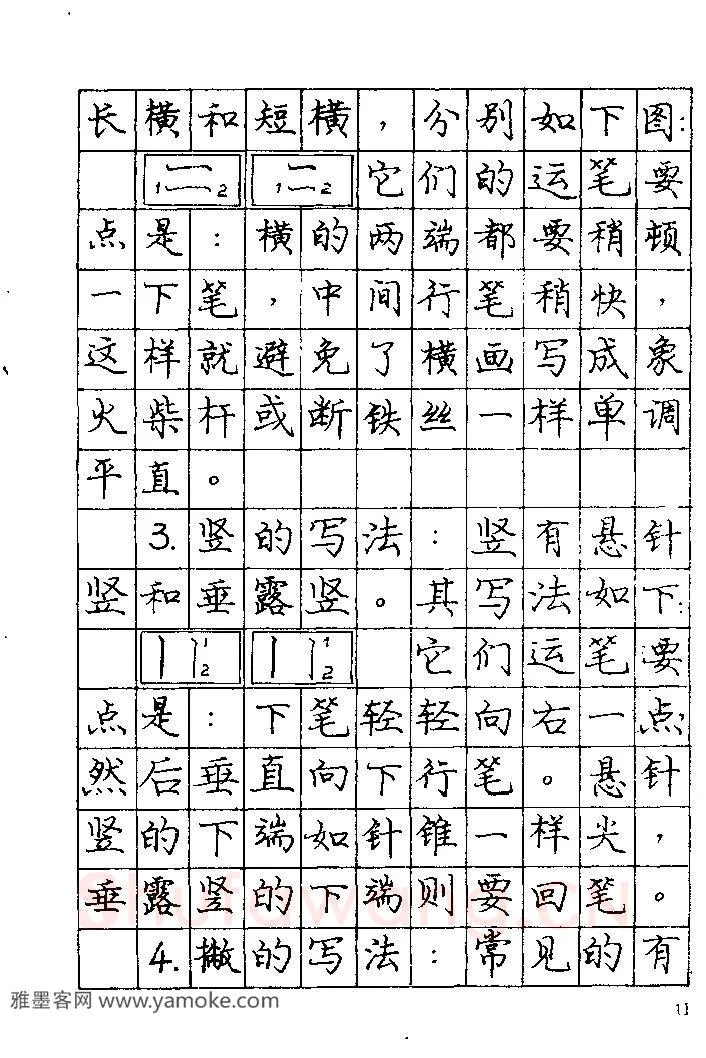 长横和短横，分别如下图：
1 2 1 2 它们的运笔要
点是：横的两端都要稍顿
一下笔，中间行笔稍快，
这样就避免了横画写成象
火柴杆或断铁丝一样单调
平直。
3.竖的写法：竖有悬针
竖和垂露竖。其写法如下：
1 2 1 2 它们运笔要
点是：下笔轻轻向右一点
然后垂直向下行笔。悬针
竖的下端如针锥一样尖，
垂露竖的下端则要回笔。
4.撇的写法：常见的有
shufawang.cn
雅墨客网 www.yamoke.com
11